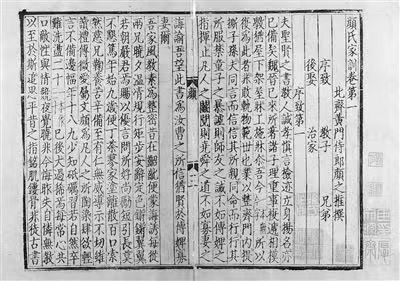 顏氏家訓卷第一
北齊黃門侍郎顏之推撰
序致 教子 兄弟
後娶 治家
序致第一
夫聖賢之書教人誠孝慎言檢迹立身揚名亦
已備矣魏晉已來所著諸子理重事複遞相模
斆猶屋下架屋牀上施牀耳吾今所以
復為此者非敢軌物範世也業以整齊門內提
撕子孫夫同言而信信其所親同命而行行其
所服禁童子之暴謔則師友之誡不如傅婢之
指揮止凡人之鬭鬩則堯舜之道不如寡妻之
誨諭吾望此書為汝曹之所信猶賢於傅婢寡
妻爾
吾家風教素為整密昔在齠齔便蒙誨誘每從
兩兄曉夕溫凊規行矩步安辭定色鏘鏘翼翼
若朝嚴君焉賜以優言問所好尚勵短引長莫
不懇篤年始九歲便丁荼蓼家塗離散百口索
然慈兄鞠養苦辛備至有仁無威導示不切雖
讀禮傳微愛屬文頗為凡人之所陶染肆欲輕
言不備邊幅年十八九少知砥礪習若自然卒
難洗盪二十已後大過稀焉每常心共
口敵性與情競夜覺曉非今悔昨失自憐無教
以至於斯追思平昔之指銘肌鏤骨非徒古書